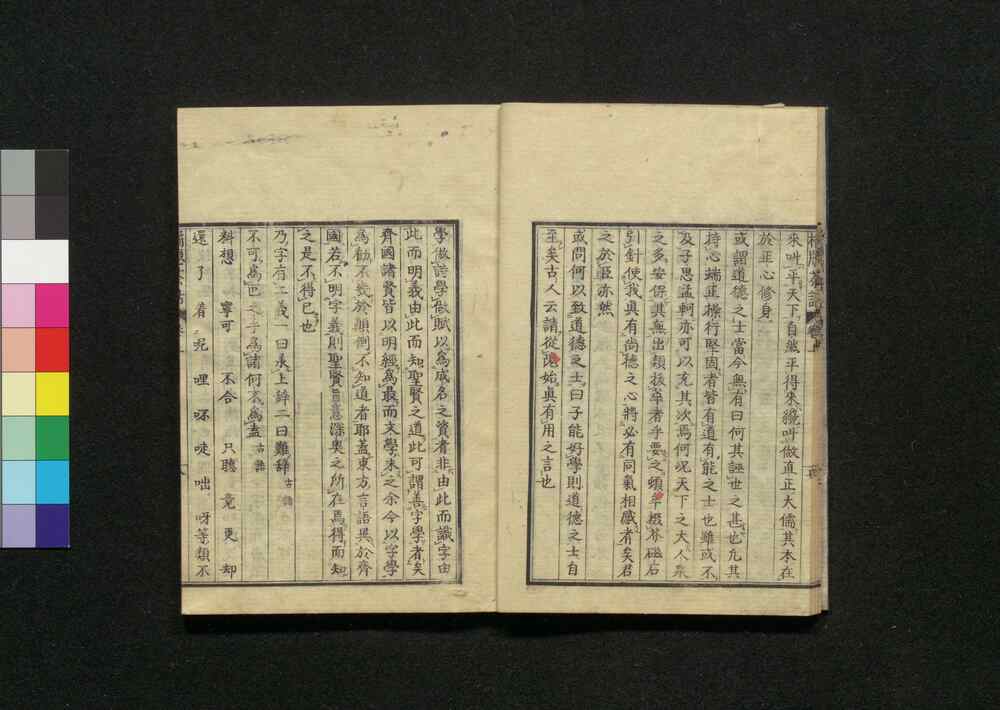 來叫平天下自然平得來纔叫做直正大儒其本在
於正心修身
或謂道德之士當今無有曰何其誣世之甚也凡其
持心端正操行堅固者皆有道有能之士也雖或不
及子思孟軻亦可以充其次焉何況天下之大人衆
之多安保其無出類拔萃者乎要之頓牟掇芥磁石
引針使我眞有尚德之心將必有同氣相感者矣君
之於臣亦然
或問何以致道德之士曰子能好學則道德之士自
至矣古人云請從隗始眞有用之言也
學做詩學做賦以爲成名之資者非由此而識字由
此而明義由此而知聖賢之道此可謂善字學者矣
齊國諸賢皆以明經爲最而末學來之余今以字學
爲勸不幾於顛倒不知道者耶蓋東方言語異於齊
國若不明字義則聖賢旨意深奧之所在焉得而知
之是不得已也
乃字有二義一曰承上辭二曰難辭
不可爲也之乎爲諸何不爲盍
料想 寧可 不合 只聽 竟 更 却
還 了 着 況 哩 呀 咄 呀等類不